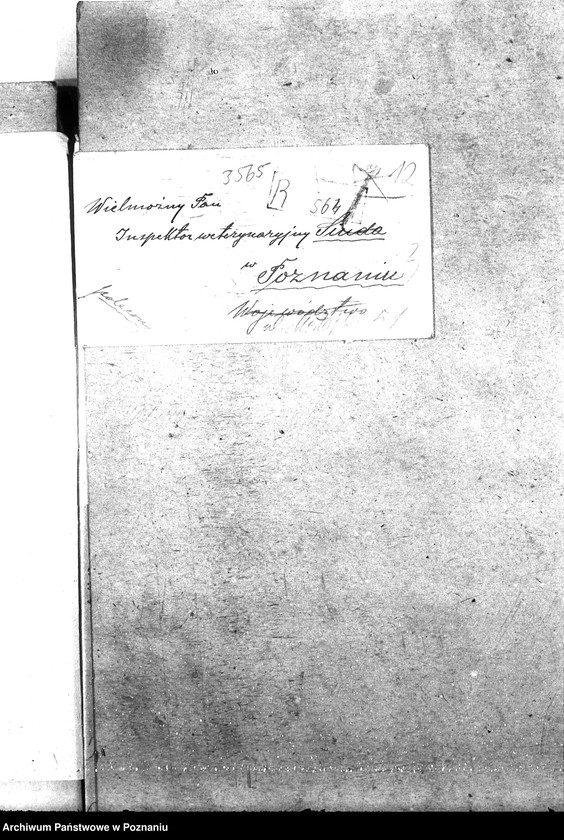 do
3565 R 564 12
Wielmożny Pan
Inspektor weterynaryjny Siuda
w Poznaniu
Województwo
w
polecone
Archiwum Państwowe w Poznaniu